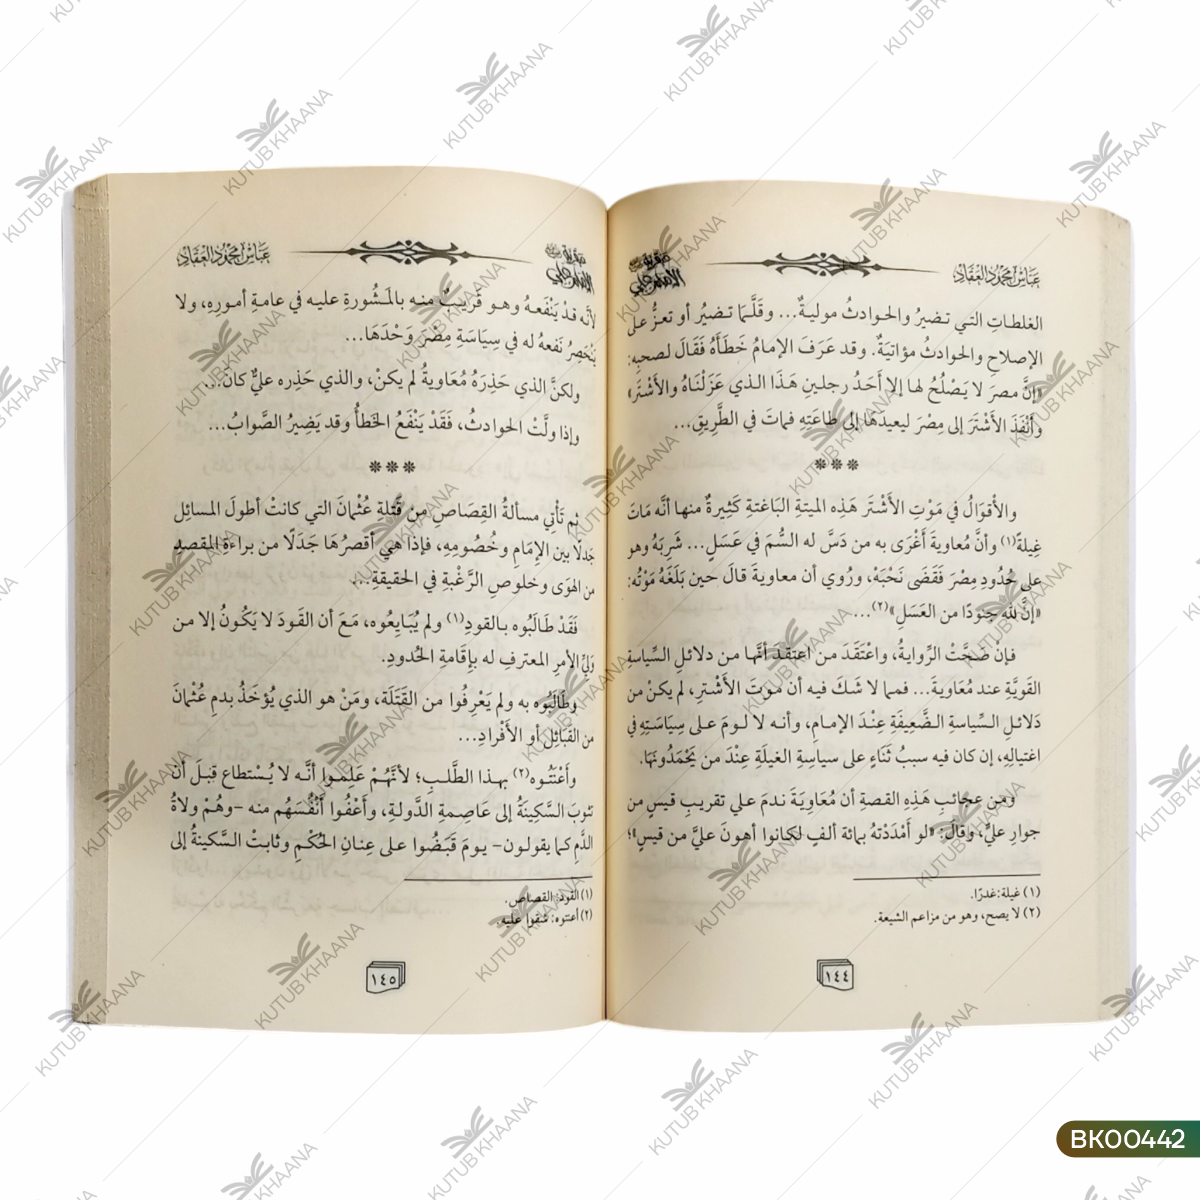 عبقرية الإمام علي
عباس محمود العقاد
الغلطاتِ التي تضيرُ والحوادثُ موليةٌ... وقَلَّمَا تضيرُ أو تعزُّ على
الإصلاحِ والحوادثُ مؤاتيَةٌ. وقد عَرَفَ الإمامُ خَطَأَهُ فَقَالَ لصحبِه:
«إنَّ مصرَ لا يَصْلُحُ لها إلا أَحَدُ رجلينِ هَذَا الذي عَزَلْنَاهُ والأَشْتَر»
وأَنْفَذَ الأَشْتَرَ إلى مِصْرَ ليعيدَهَا إلى طَاعَتِهِ فماتَ في الطَّرِيقِ...
***
والأَقوَالُ في مَوْتِ الأَشْتَرَ هَذِه الميتةِ البَاغتةِ كَثِيرةٌ منها أنَّه مَاتَ
غِيلةً(١) وأنَّ مُعاويةَ أَغْرَى به من دَسَّ له السُّمَ في عَسَلٍ... شَرِبَهُ وهو
على حُدُودِ مِصْرَ فَقَضَى نَحْبَهْ، ورُوي أن معاويةَ قالَ حين بَلَغَهُ مَوْتُه:
«إنَّ للهِ جنودًا من العَسَلِ»(٢)...
فإن صَحَّتْ الرِّوايةُ، واعْتَقَدَ من اعتقدَ أنَّها من دلائلِ السِّياسةِ
القَويَّةِ عند مُعَاويةَ... فمما لا شَكَ فيه أن موتَ الأَشْتَرِ، لم يكنْ من
دَلائلِ السِّياسةِ الضَّعِيفَةِ عِنْدَ الإمامِ، وأنه لا لومَ على سِيَاسَتِهِ في
اغتيالِهِ، إن كان فيه سببُ ثَنَاءٍ على سياسةِ الغيلةِ عِنْدَ من يَحْمَدُونَهَا.
ومن عجائبِ هَذِهِ القصةِ أن مُعَاوِيَةَ ندمَ علي تقريبِ قيسٍ من
جوارِ عليٍّ، وقالَ: «لو أَمْدَدْتهُ بمائة ألفٍ لكانوا أهونَ عليَّ من قيسٍ»؛
(١) غيلة: غدرًا.
(٢) لا يصح، وهو من مزاعم الشيعة.
١٤٤
عبقرية الإمام علي
عباس محمود العقاد
لأنَّه قدْ يَنْفَعهُ وهو قَريبٌ منه بالمَشُورةِ عليه في عامةِ أمورِهِ، ولا
يَنْحَصِرُ نَفعهُ له في سِيَاسَةِ مِصْرَ وَحْدَهَا...
ولكنَّ الذي حَذِرَهُ مُعَاويةُ لم يكنْ، والذي حَذِره عليٌّ كانَ...
وإذا ولَّتْ الحوادثُ، فَقَدْ يَنْفَعُ الخَطأُ وقد يَضِيرُ الصَّوابُ...
***
ثم تَأْتِي مسألةُ القِصَاصِ من قَتْلةِ عُثْمَانَ التي كانتْ أطولَ المسائلِ
جَدلًا بين الإِمَامِ وخُصُومِهِ، فإذا هي أقصرُهَا جَدَلًا من براءةِ المقصدِ
من الهوَى وخلوصِ الرَّغْبةِ في الحقيقةِ...
فَقَدْ طَالَبُوه بالقودِ(١) ولم يُبَايِعُوه، مَعَ أن القَودَ لا يَكُونُ إلا من
وَليِّ الأمرِ المعترفِ له بإقَامةِ الحُدودِ.
وطَالَبُوه به ولم يَعْرِفُوا من القَتَلَة، ومَنْ هو الذي يُؤخَذُ بدمِ عُثْمانَ
من القَبائِلِ أو الأَفْرادِ...
وأَعْنَتُوه(٢) بهذا الطَّلبِ؛ لأنَّهُمْ عَلِمُوا أنَّه لا يُسْتطاع قبلَ أنْ
تثوبَ السَّكِينَةُ إلى عَاصِمةِ الدَّولةِ، وأَعْفُوا أَنْفُسَهُم منه -وهُمْ ولاةُ
الدَّمِ كما يقولون- يومَ قَبَضُوا على عِنانِ الحُكْمِ وثابتْ السَّكينةُ إلى
(١) القود: القصاص.
(٢) أعنتوه: شقوا عليه.
١٤٥
BK00442
KUTUB KHAANA